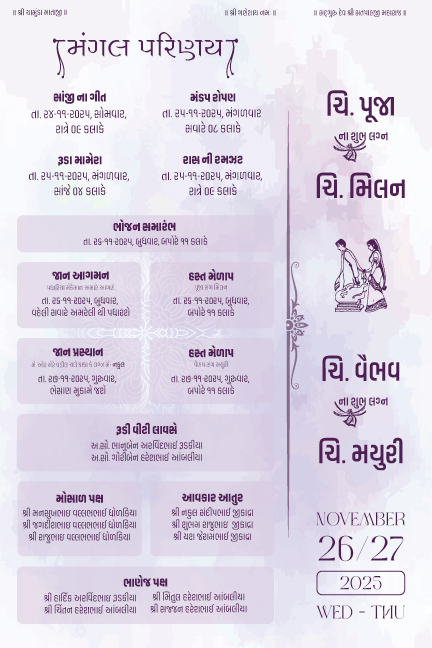 ॥ શ્રી ચામુંડા માતાજી ॥
॥ શ્રી ગણેશાય નમઃ ॥
॥ સદ્‌ગુરુ દેવ શ્રી સતપાલજી મહારાજ ॥
મંગલ પરિણય
સાંજી ના ગીત
તા. ૨૪-૧૧-૨૦૨૫, સોમવાર,
રાત્રે ૦૯ કલાકે
મંડપ રોપણ
તા. ૨૫-૧૧-૨૦૨૫, મંગળવાર
સવારે ૦૮ કલાકે
રૂડા મામેરા
તા. ૨૫-૧૧-૨૦૨૫, મંગળવાર,
સાંજે ૦૪ કલાકે
રાસ ની રમઝટ
તા. ૨૫-૧૧-૨૦૨૫, મંગળવાર,
રાત્રે ૦૯ કલાકે
ભોજન સમારંભ
તા. ૨૬-૧૧-૨૦૨૫, બુધવાર, બપોરે ૧૧ કલાકે
જાન આગમન
તા. ૨૬-૧૧-૨૦૨૫, બુધવાર,
વહેલી સવારે અમરેલી થી પધારશે
હસ્ત મેળાપ
પૂજા સંગ મિલન
તા. ૨૬-૧૧-૨૦૨૫, બુધવાર,
બપોરે ૧૧ કલાકે
જાન પ્રસ્થાન
તા. ૨૭-૧૧-૨૦૨૫, ગુરુવાર,
ભેંસાણ મુકામે જશે
હસ્ત મેળાપ
વૈભવ સંગ મયુરી
તા. ૨૭-૧૧-૨૦૨૫, ગુરુવાર,
બપોરે ૧૧ કલાકે
રૂડી વીંટી લાવસે
અ.સૌ. ભાનુબેન અરવિંદભાઈ રૂડકીયા
અ.સૌ. ગૌરીબેન હરેશભાઈ આંબલીયા
મોસાળ પક્ષ
શ્રી મનસુખભાઇ વલ્લભભાઇ ધોળકિયા
શ્રી જગદીશભાઇ વલ્લભભાઇ ધોળકિયા
શ્રી રાજુભાઇ વલ્લભભાઇ ધોળકિયા
આવકાર આતુર
શ્રી નકુલ સંદીપભાઈ જીકાદ્રા
શ્રી શુભમ રાજુભાઇ જીકાદ્રા
શ્રી યશ જેરામભાઈ જીકાદ્રા
ભાણેજ પક્ષ
શ્રી હાર્દિક અરવિંદભાઇ રૂડકીયા
શ્રી ચિંતન હરેશભાઈ આંબલીયા
શ્રી મિતુલ હરેશભાઈ આંબલીયા
શ્રી સજ્જન હરેશભાઈ આંબલીયા
ચિ. પૂજા
ના શુભ લગ્ન
ચિ. મિલન
ચિ. વૈભવ
ના શુભ લગ્ન
ચિ. મયુરી
NOVEMBER
26/27
2025
WED - THU